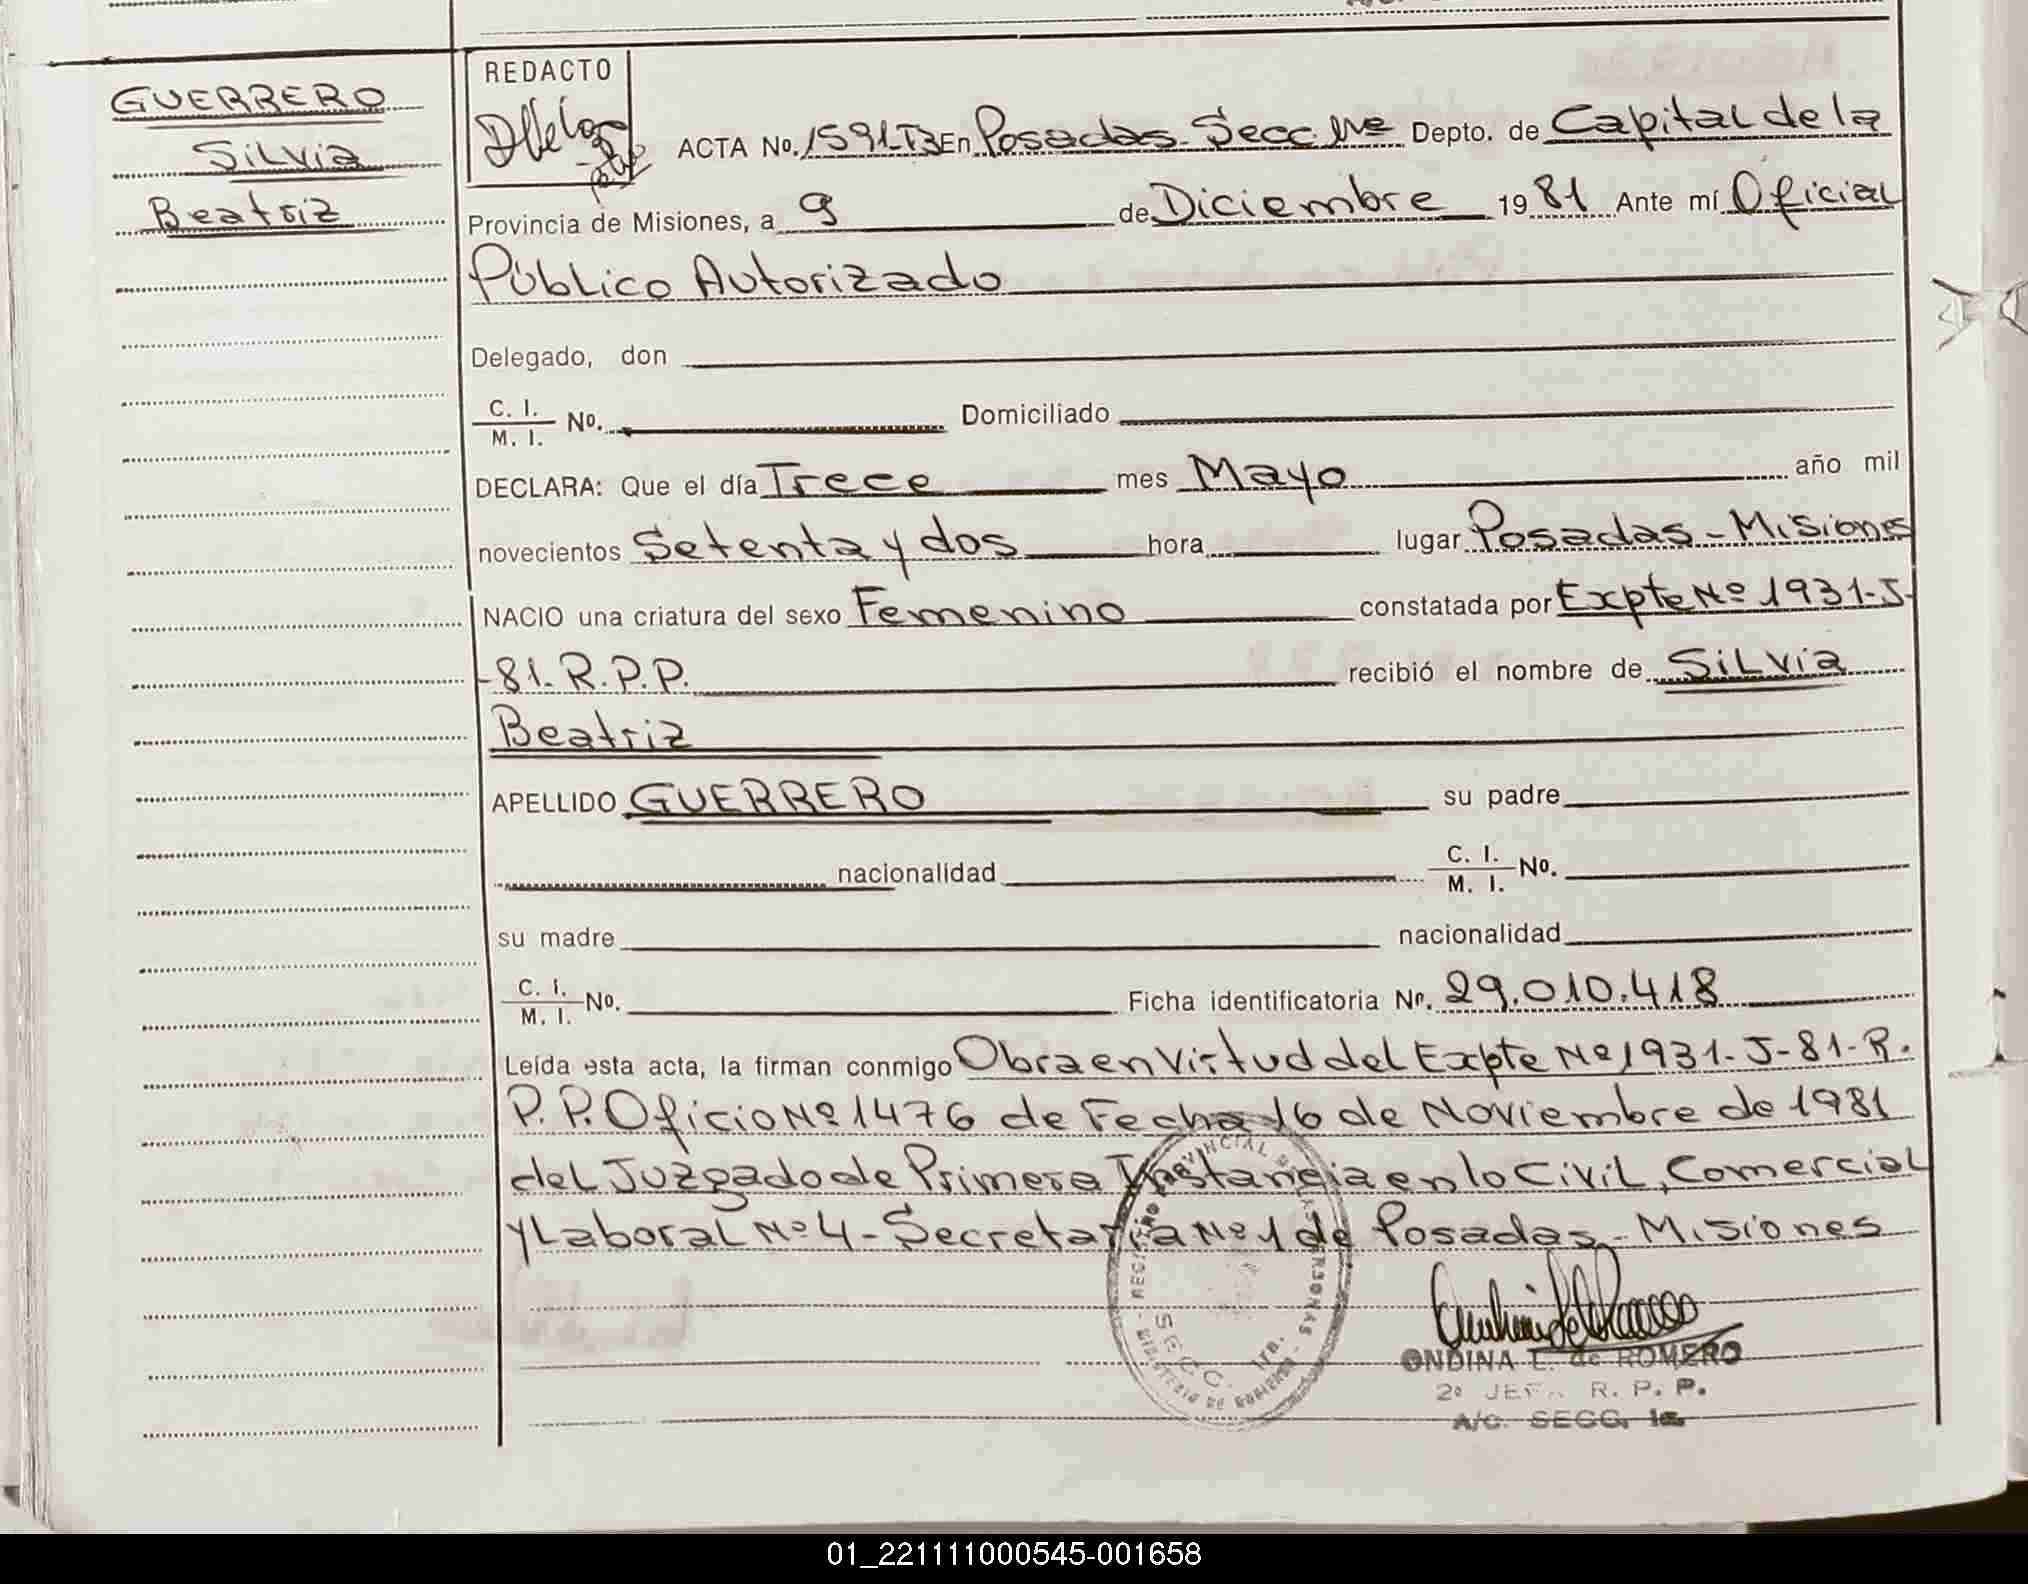 GUERRERO
Silvia
Beatriz
REDACTO
ACTA No. 1591-T3 En Posadas-Secc. 1ra Depto. de Capital de la
Provincia de Misiones, a 9 de Diciembre 1981 Ante mí Oficial
Público Autorizado
Delegado, don
C. I.
M. I. No. Domiciliado
DECLARA: Que el día Trece mes Mayo año mil
novecientos Setenta y dos hora lugar Posadas-Misiones
NACIO una criatura del sexo Femenino constatada por Expte Nº 1931-J-
-81-R.P.P. recibió el nombre de Silvia
Beatriz
APELLIDO GUERRERO su padre
nacionalidad C. I.
M. I. No.
su madre nacionalidad
C. I.
M. I. No. Ficha identificatoria No. 29.010.418
Leída esta acta, la firman conmigo Obra en Virtud del Expte Nº 1931-J-81-R.
P.P. Oficio Nº 1476 de Fecha 16 de Noviembre de 1981
del Juzgado de Primera Instancia en lo Civil, Comercial
y Laboral Nº 4-Secretaria Nº 1 de Posadas-Misiones
REGISTRO PROVINCIAL DE LAS PERSONAS
SECC. 1ra.
MINISTERIO DE GOBIERNO
ONDINA L. de ROMERO
2º JEFA R. P. P.
A/C. SECC. 1a.
01_221111000545-001658